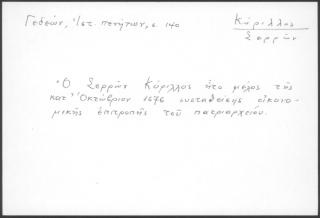 Γεδεών, Ἱστ. πενήτων, σ. 140
Κύριλλος
Σερρῶν
Ὁ Σερρῶν Κύριλλος ἦτο μέλος τῆς
κατ' Ὀκτώβριον 1676 συσταθείσης οἰκονο-
μικῆς ἐπιτροπῆς τοῦ πατριαρχείου.